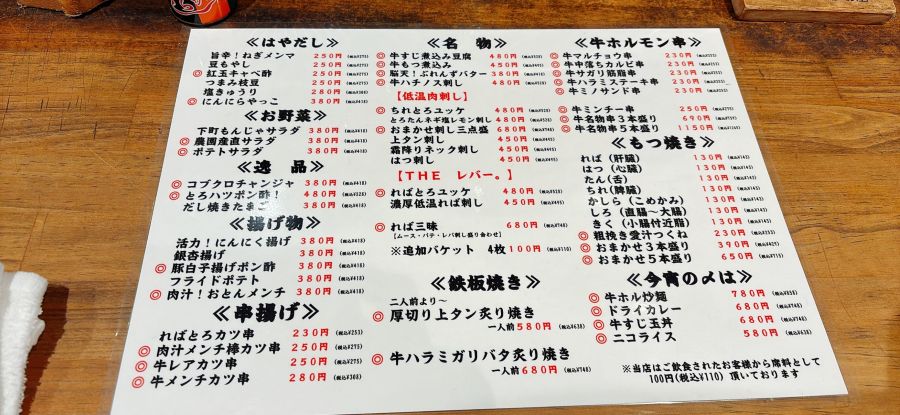 ≪はやだし≫
旨辛!ねぎメンマ 250円 (税込¥275)
豆もやし 250円 (税込¥275)
◎紅玉キャベ酢 250円 (税込¥275)
つまみ枝豆 250円 (税込¥275)
塩きゅうり 280円 (税込¥308)
◎にんにらやっこ 380円 (税込¥418)
≪お野菜≫
下町もんじゃサラダ 380円 (税込¥418)
◎農園産直サラダ 380円 (税込¥418)
◎ポテトサラダ 380円 (税込¥418)
≪逸品≫
◎コブクロチャンジャ 380円 (税込¥418)
◎とろハツポン酢! 480円 (税込¥528)
だし焼きたまご 380円 (税込¥418)
≪揚げ物≫
活力!にんにく揚げ 380円 (税込¥418)
銀杏揚げ 380円 (税込¥418)
◎豚白子揚げポン酢 380円 (税込¥418)
フライドポテト 380円 (税込¥418)
◎肉汁!おとんメンチ 380円 (税込¥418)
≪串揚げ≫
ればとろカツ串 230円 (税込¥253)
◎肉汁メンチ棒カツ串 250円 (税込¥275)
◎牛レアカツ串 250円 (税込¥275)
◎牛メンチカツ串 280円 (税込¥308)
≪名物≫
◎牛すじ煮込み豆腐 480円 (税込¥528)
◎牛もつ煮込み 450円 (税込¥495)
◎脳天!ぶれんずバター 380円 (税込¥418)
◎牛ハチノス刺し 480円 (税込¥528)
【低温肉刺し】
◎ちれとろユッケ 480円 (税込¥528)
とろたんネギ塩レモン刺し 480円 (税込¥528)
◎おまかせ刺し三点盛 680円 (税込¥748)
◎上タン刺し 450円 (税込¥495)
霜降りネック刺し 450円 (税込¥495)
はつ刺し 450円 (税込¥495)
【THE レバー。】
◎ればとろユッケ 480円 (税込¥528)
濃厚低温れば刺し 450円 (税込¥495)
◎れば三昧 680円 (税込¥748)
【ムース・パテ・レバ刺し盛り合わせ】
※追加バケット 4枚100円 (税込¥110)
≪鉄板焼き≫
二人前より~
◎厚切り上タン炙り焼き
一人前580円 (税込¥638)
◎牛ハラミガリバタ炙り焼き
一人前680円 (税込¥748)
≪牛ホルモン串≫
◎牛マルチョウ串 230円 (税込¥253)
◎牛中落ちカルビ串 230円 (税込¥253)
◎牛サガリ筋脂串 230円 (税込¥253)
◎牛ハラミステーキ串 230円 (税込¥253)
◎牛ミノサンド串 230円 (税込¥253)
◎牛ミンチー串 250円 (税込¥275)
◎牛名物串3本盛り 690円 (税込¥759)
◎牛名物串5本盛り 1150円 (税込¥1265)
≪もつ焼き≫
れば(肝臓) 130円 (税込¥143)
はつ(心臓) 130円 (税込¥143)
たん(舌) 130円 (税込¥143)
ちれ(脾臓) 130円 (税込¥143)
かしら(こめかみ) 130円 (税込¥143)
しろ(直腸~大腸) 130円 (税込¥143)
きく(小腸付近脂) 130円 (税込¥143)
◎粗挽き愛汁つくね 230円 (税込¥253)
◎おまかせ3本盛り 390円 (税込¥429)
◎おまかせ5本盛り 650円 (税込¥715)
≪今宵の〆は≫
◎牛ホル炒麺 780円 (税込¥858)
◎ドライカレー 680円 (税込¥748)
◎牛すじ玉丼 580円 (税込¥638)
◎ニコライス 580円 (税込¥638)
※当店はご飲食されたお客様から席料として
100円(税込¥110)頂いております